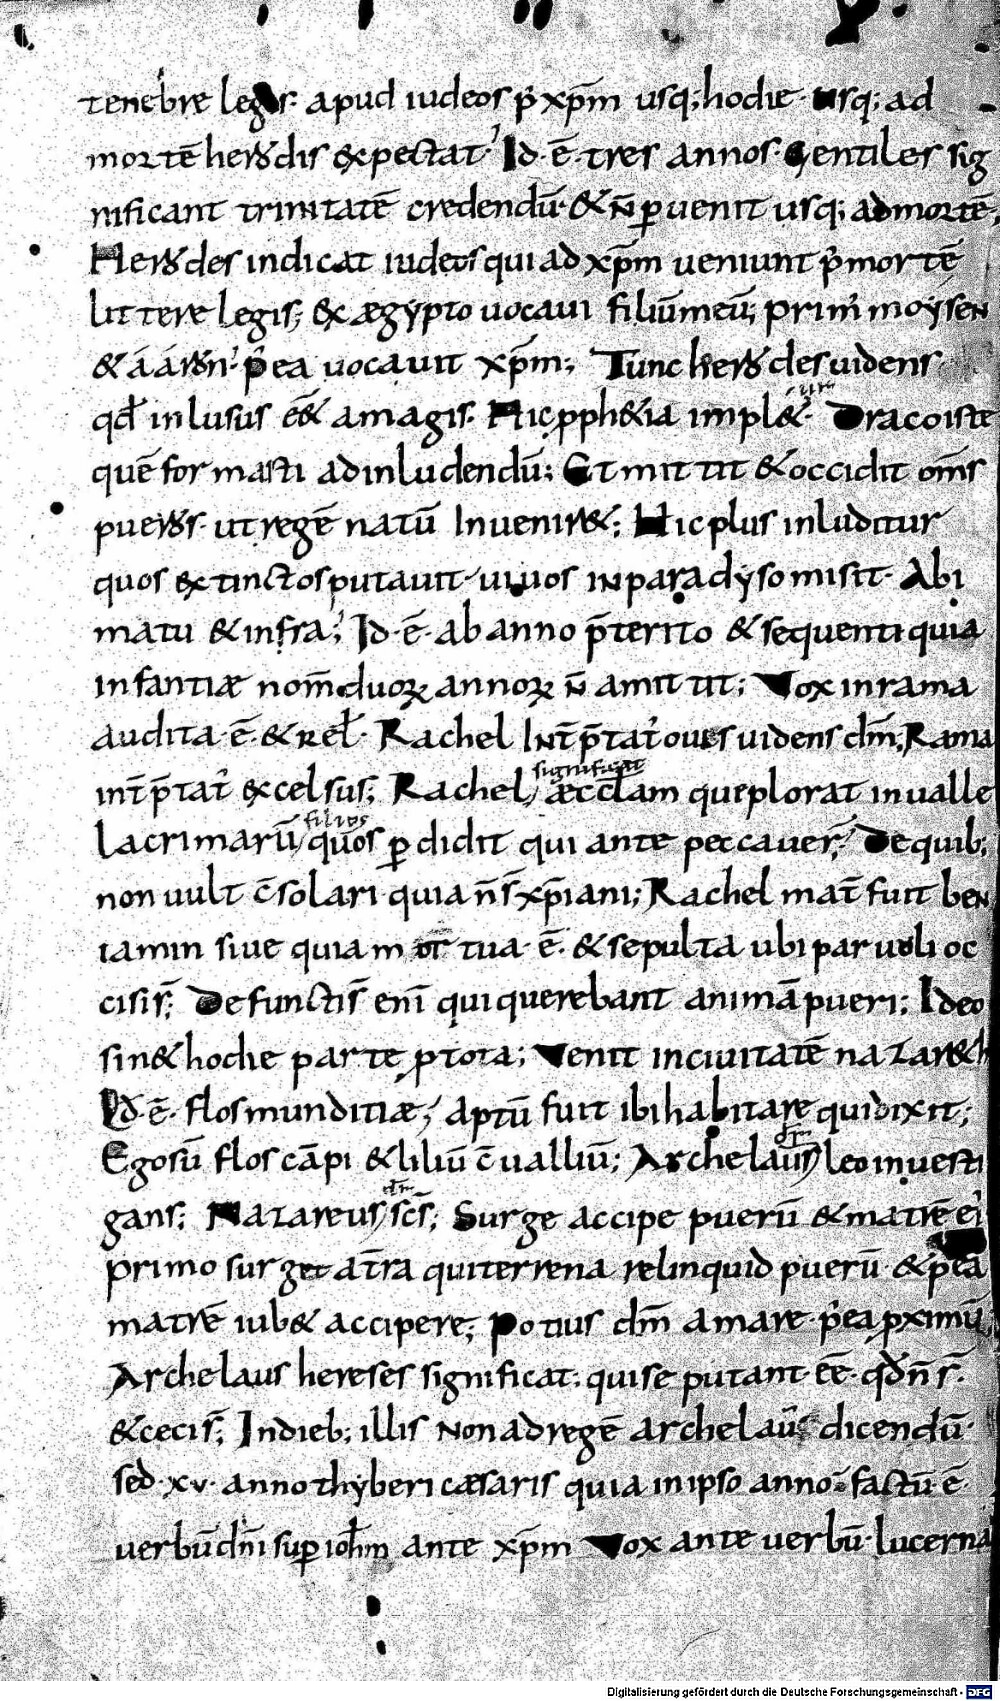 tenebre legis· apud iudeos p̄ xp̄m usq; hodie· usq; ad
mortē herodis expectat᾿ Id· ē· tres annos· Gentiles sig
nificant trinitatē credendū· & n̄ peruenit usq; ad mortē·
Herodes indicat iudeos qui ad xp̄m ueniunt p̄ mortē
littere legis; ex ægypto uocaui filiū meū; prim᾿ moysen
& áárón᾿ p̄ea uocauit xp̄m; Tunc herodes uidens·
qđ inlusus eēt a magis· Hic pph&ia impl&· Draco iste
quē formasti ad inludendū; Et mittit & occidit om̄s
pueros· ut regē natū inuenir&; Hic plus inluditur
quos extinctos putauit uiuos in paradyso misit· Abi
matu & infra; Id· ē· ab anno p̄terito & sequenti quia
infantiæ nom̄ duoꝝ annoꝝ n̄ amittit; Vox in rama
audita· ē· & rel̄· Rachel int̄p̄tat᾿ oues uidens dm̄· Rama
int̄p̄tat᾿ excelsus; Rachel significat æccl̄am que plorat in ualle
lacrimarū filios quos ꝑdidit qui ante peccauer̄; De quib;
non uult c̄solari quia n̄ s̄ xp̄iani; Rachel mat̄ fuit ben
iamin siue quia mortua· ē· & sepulta ubi paruoli oc
cisi s̄; Defuncti s̄ eni᾿ qui querebant animā pueri; Ideo
sin& hodie parte ꝓ tota; Venit in ciuitatē nazar&h
Id· ē· flos munditiæ, aptū fuit ibi habitare qui dixit;
Ego sū flos cāpi & liliū c̄uallium; Archelaus leo inuesti
gans; Nazareus sc̄s; Surge accipe puerū & matrē ei᾿
primo surget a t̄ra qui terrena relinquid puerū· & p̄ea
matrē iub& accipere; Potius dm̄ amare· p̄ea ꝓximū,
Archelaus hereses significat· qui se putant· eē· qđ n̄ s̄·
& ceci s̄; In dieb; illis non ad regē archelaū dicendū·
sed· xv· anno thyberi cæsaris quia in ipso anno· factū· ē·
uerbū dn̄i suꝑ ioh̄m ante xp̄m Vox ante uerbū· lucerna
Digitalisierung gefördert durch die Deutsche Forschungsgemeinschaft - DFG